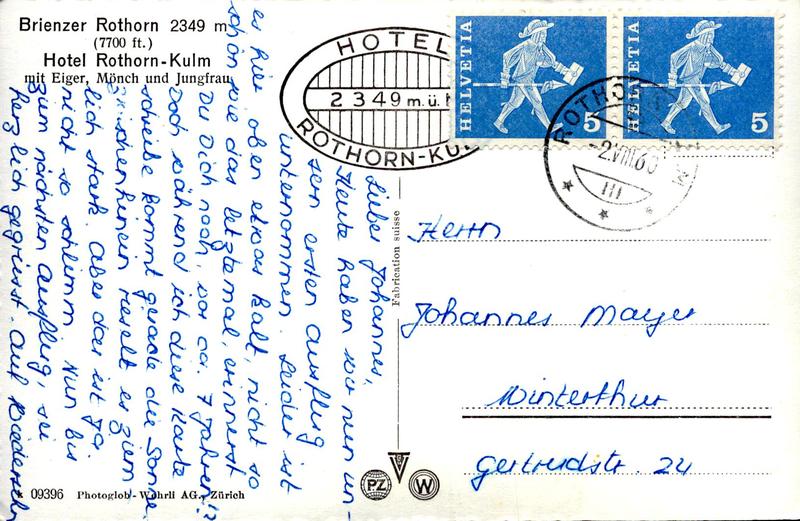 Brienzer Rothorn 2349 m
(7700 ft.)
Hotel Rothorn-Kulm
mit Eiger, Mönch und Jungfrau
HOTEL
2349 m. ü. M
ROTHORN-KULM
HELVETIA 5
HELVETIA 5
ROTHORN KULM
-2.VIII.60
III
Lieber Johannes,
Heute haben wir nun un-
sern ersten Ausflug
unternommen. Leider ist
es hier oben etwas kalt, nicht so
schön wie das letztemal, erinnerst
Du Dich noch, vor ca. 7 Jahren!?
Doch während ich diese Karte
schreibe kommt gerade die Sonne.
Zwischenhinein rieselt es ziem-
lich stark. Aber das ist ja
nicht so schlimm. Nun bis
zum nächsten Ausflug, sei
herzlich gegrüsst. Auf Wiederseh
Fabrication suisse
Herrn
Johannes Mayer
Winterthur
Gertrudstr. 24
PZ
W
* 09396 Photoglob-Wehrli AG., Zürich